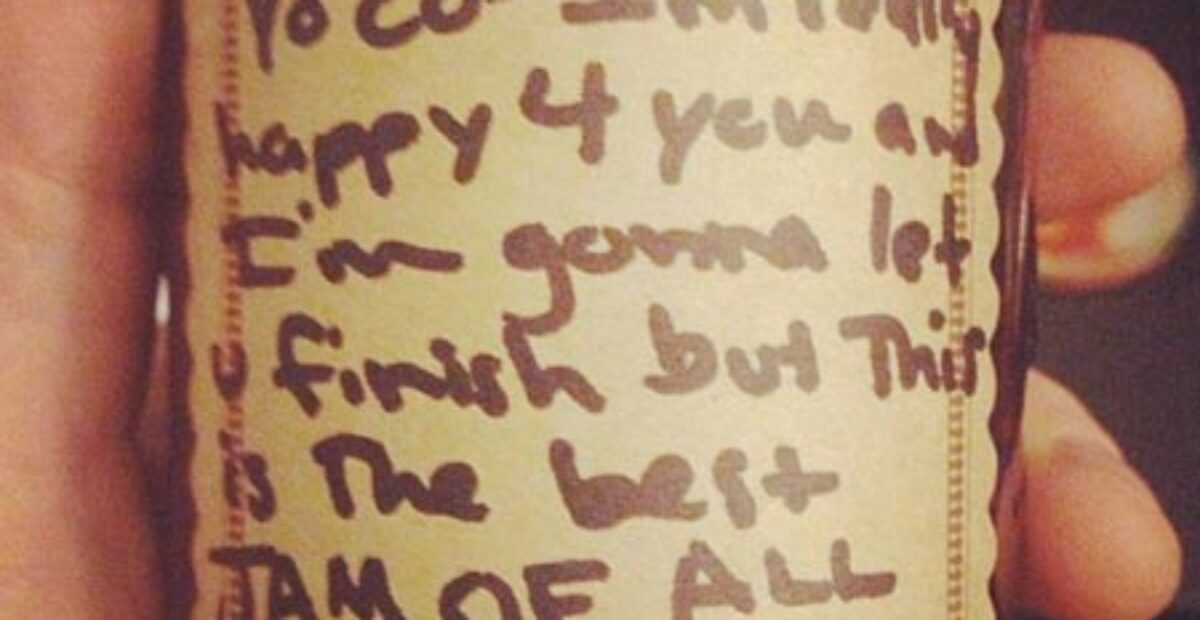 Yo Co- I'm really
happy 4 you and
I'm gonna let
finish but This
is The best
JAM OF ALL